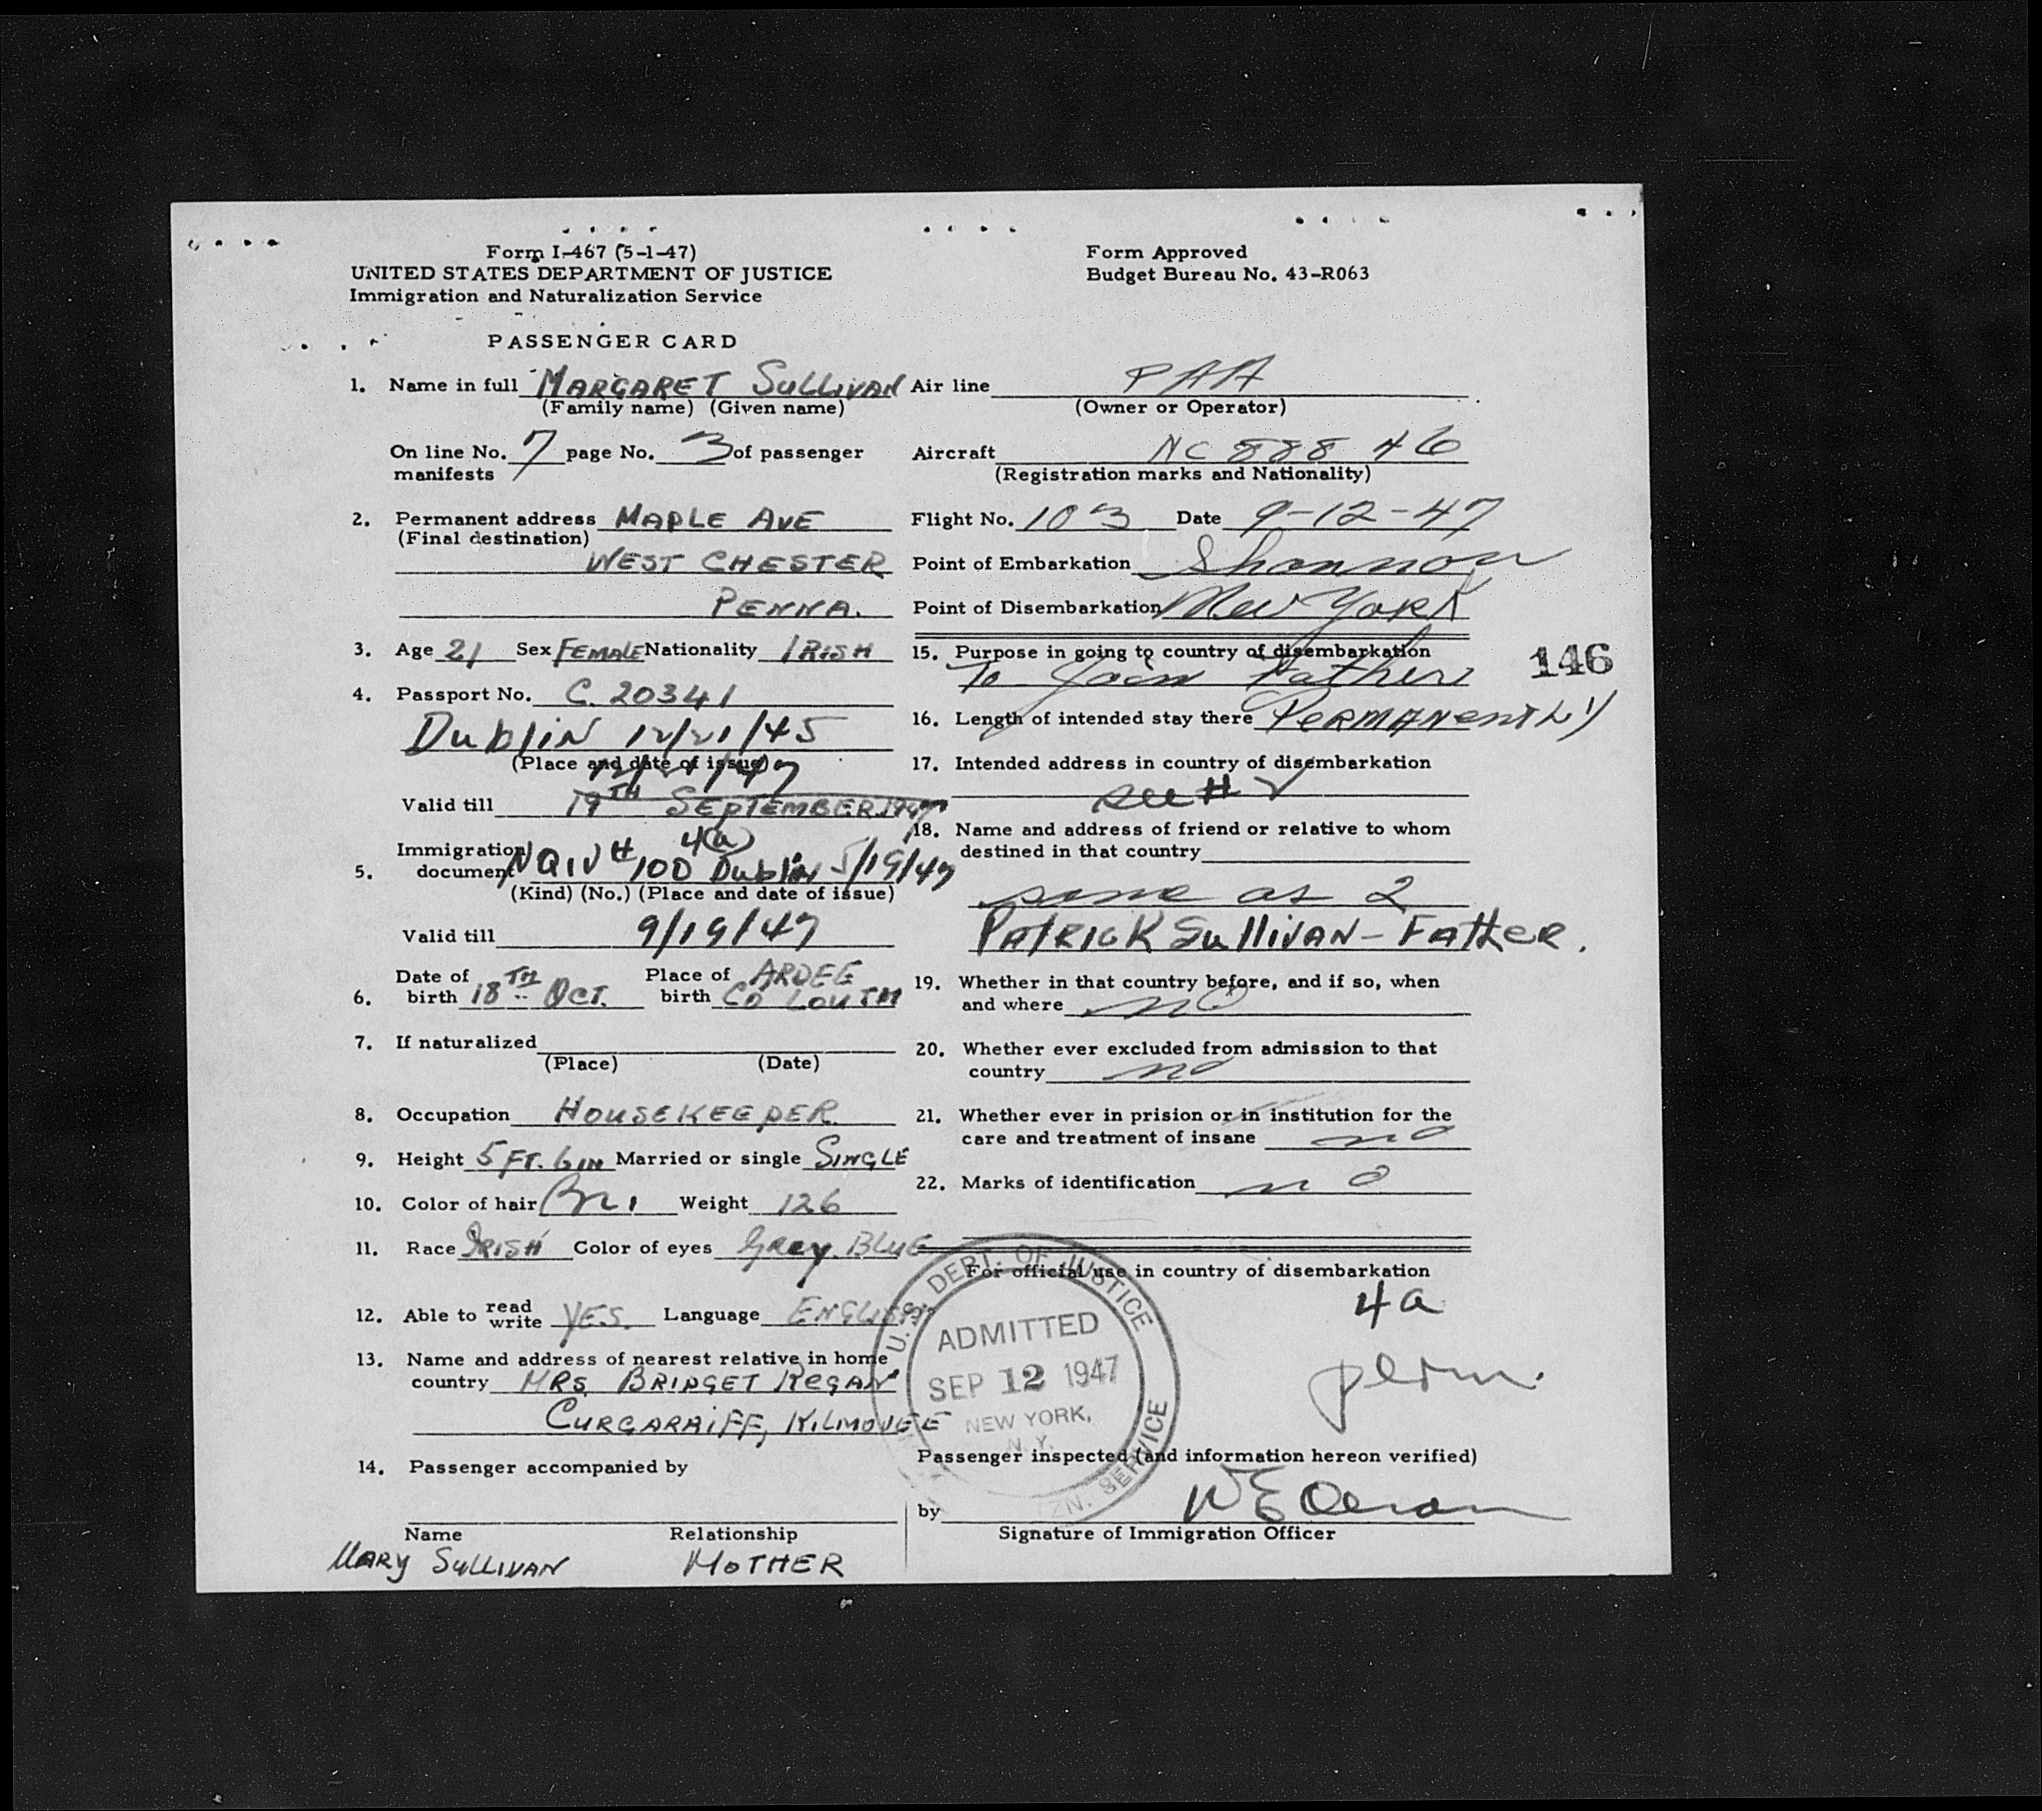 Form I-467 (5-1-47)
UNITED STATES DEPARTMENT OF JUSTICE
Immigration and Naturalization Service
Form Approved
Budget Bureau No. 43-R063
PASSENGER CARD
1. Name in full MARGARET SULLIVAN
(Family name) (Given name)
On line No. 7 page No. 3 of passenger
manifests
2. Permanent address MAPLE AVE
(Final destination)
WEST CHESTER
PENNA.
3. Age 21 Sex FEMALE Nationality IRISH
4. Passport No. C. 20341
DubliN 12/21/45
(Place and date of issue)
12/21/47
Valid till 19TH SEPTEMBER 1947
4(a)
Immigration
5. document NQIV # 100 Dublin 5/19/47
(Kind) (No.) (Place and date of issue)
Valid till 9/19/47
Date of Place of ARDEE
6. birth 18TH OCT. birth CO LOUTH
7. If naturalized
(Place) (Date)
8. Occupation HOUSEKEEPER
9. Height 5 FT. 6 IN Married or single SINGLE
10. Color of hair Weight 126
11. Race IRISH Color of eyes Grey. BLUE
12. Able to read write YES. Language ENGLISH
13. Name and address of nearest relative in home
country MRS. BRIDGET REGAN
CURGARRIFF, KILMOVEE
14. Passenger accompanied by
Name Relationship
MARY SULLIVAN MOTHER
Air line PAA
(Owner or Operator)
Aircraft NC 888 46
(Registration marks and Nationality)
Flight No. 103 Date 9-12-47
Point of Embarkation Shannon
Point of Disembarkation New York
15. Purpose in going to country of disembarkation
To Join Father
146
16. Length of intended stay there PERMANENTLY
17. Intended address in country of disembarkation
see # 2
18. Name and address of friend or relative to whom
destined in that country
same as 2
PATRICK SullIVAN - FATHER.
19. Whether in that country before, and if so, when
and where no
20. Whether ever excluded from admission to that
country no
21. Whether ever in prision or in institution for the
care and treatment of insane no
22. Marks of identification no
For official use in country of disembarkation
4a
perm.
U.S. DEPT. OF JUSTICE
ADMITTED
SEP 12 1947
NEW YORK,
N. Y.
ZN. SERVICE
Passenger inspected (and information hereon verified)
by
Signature of Immigration Officer